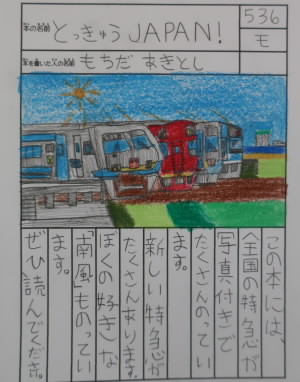 本の名前 とっきゅうJAPAN!
536
モ
本を書いた人の名前 もちだ あきとし
この本には、
全国の特急が
写真付きで
たくさんのってい
ます。
新しい特急が
たくさんあります。
ぼくの好きな
「南風」ものってい
ます。
ぜひ読んでください。